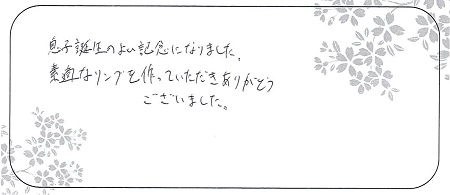 息子誕生のよい記念になりました。
素適なリングを作っていただきありがとう
ございました。